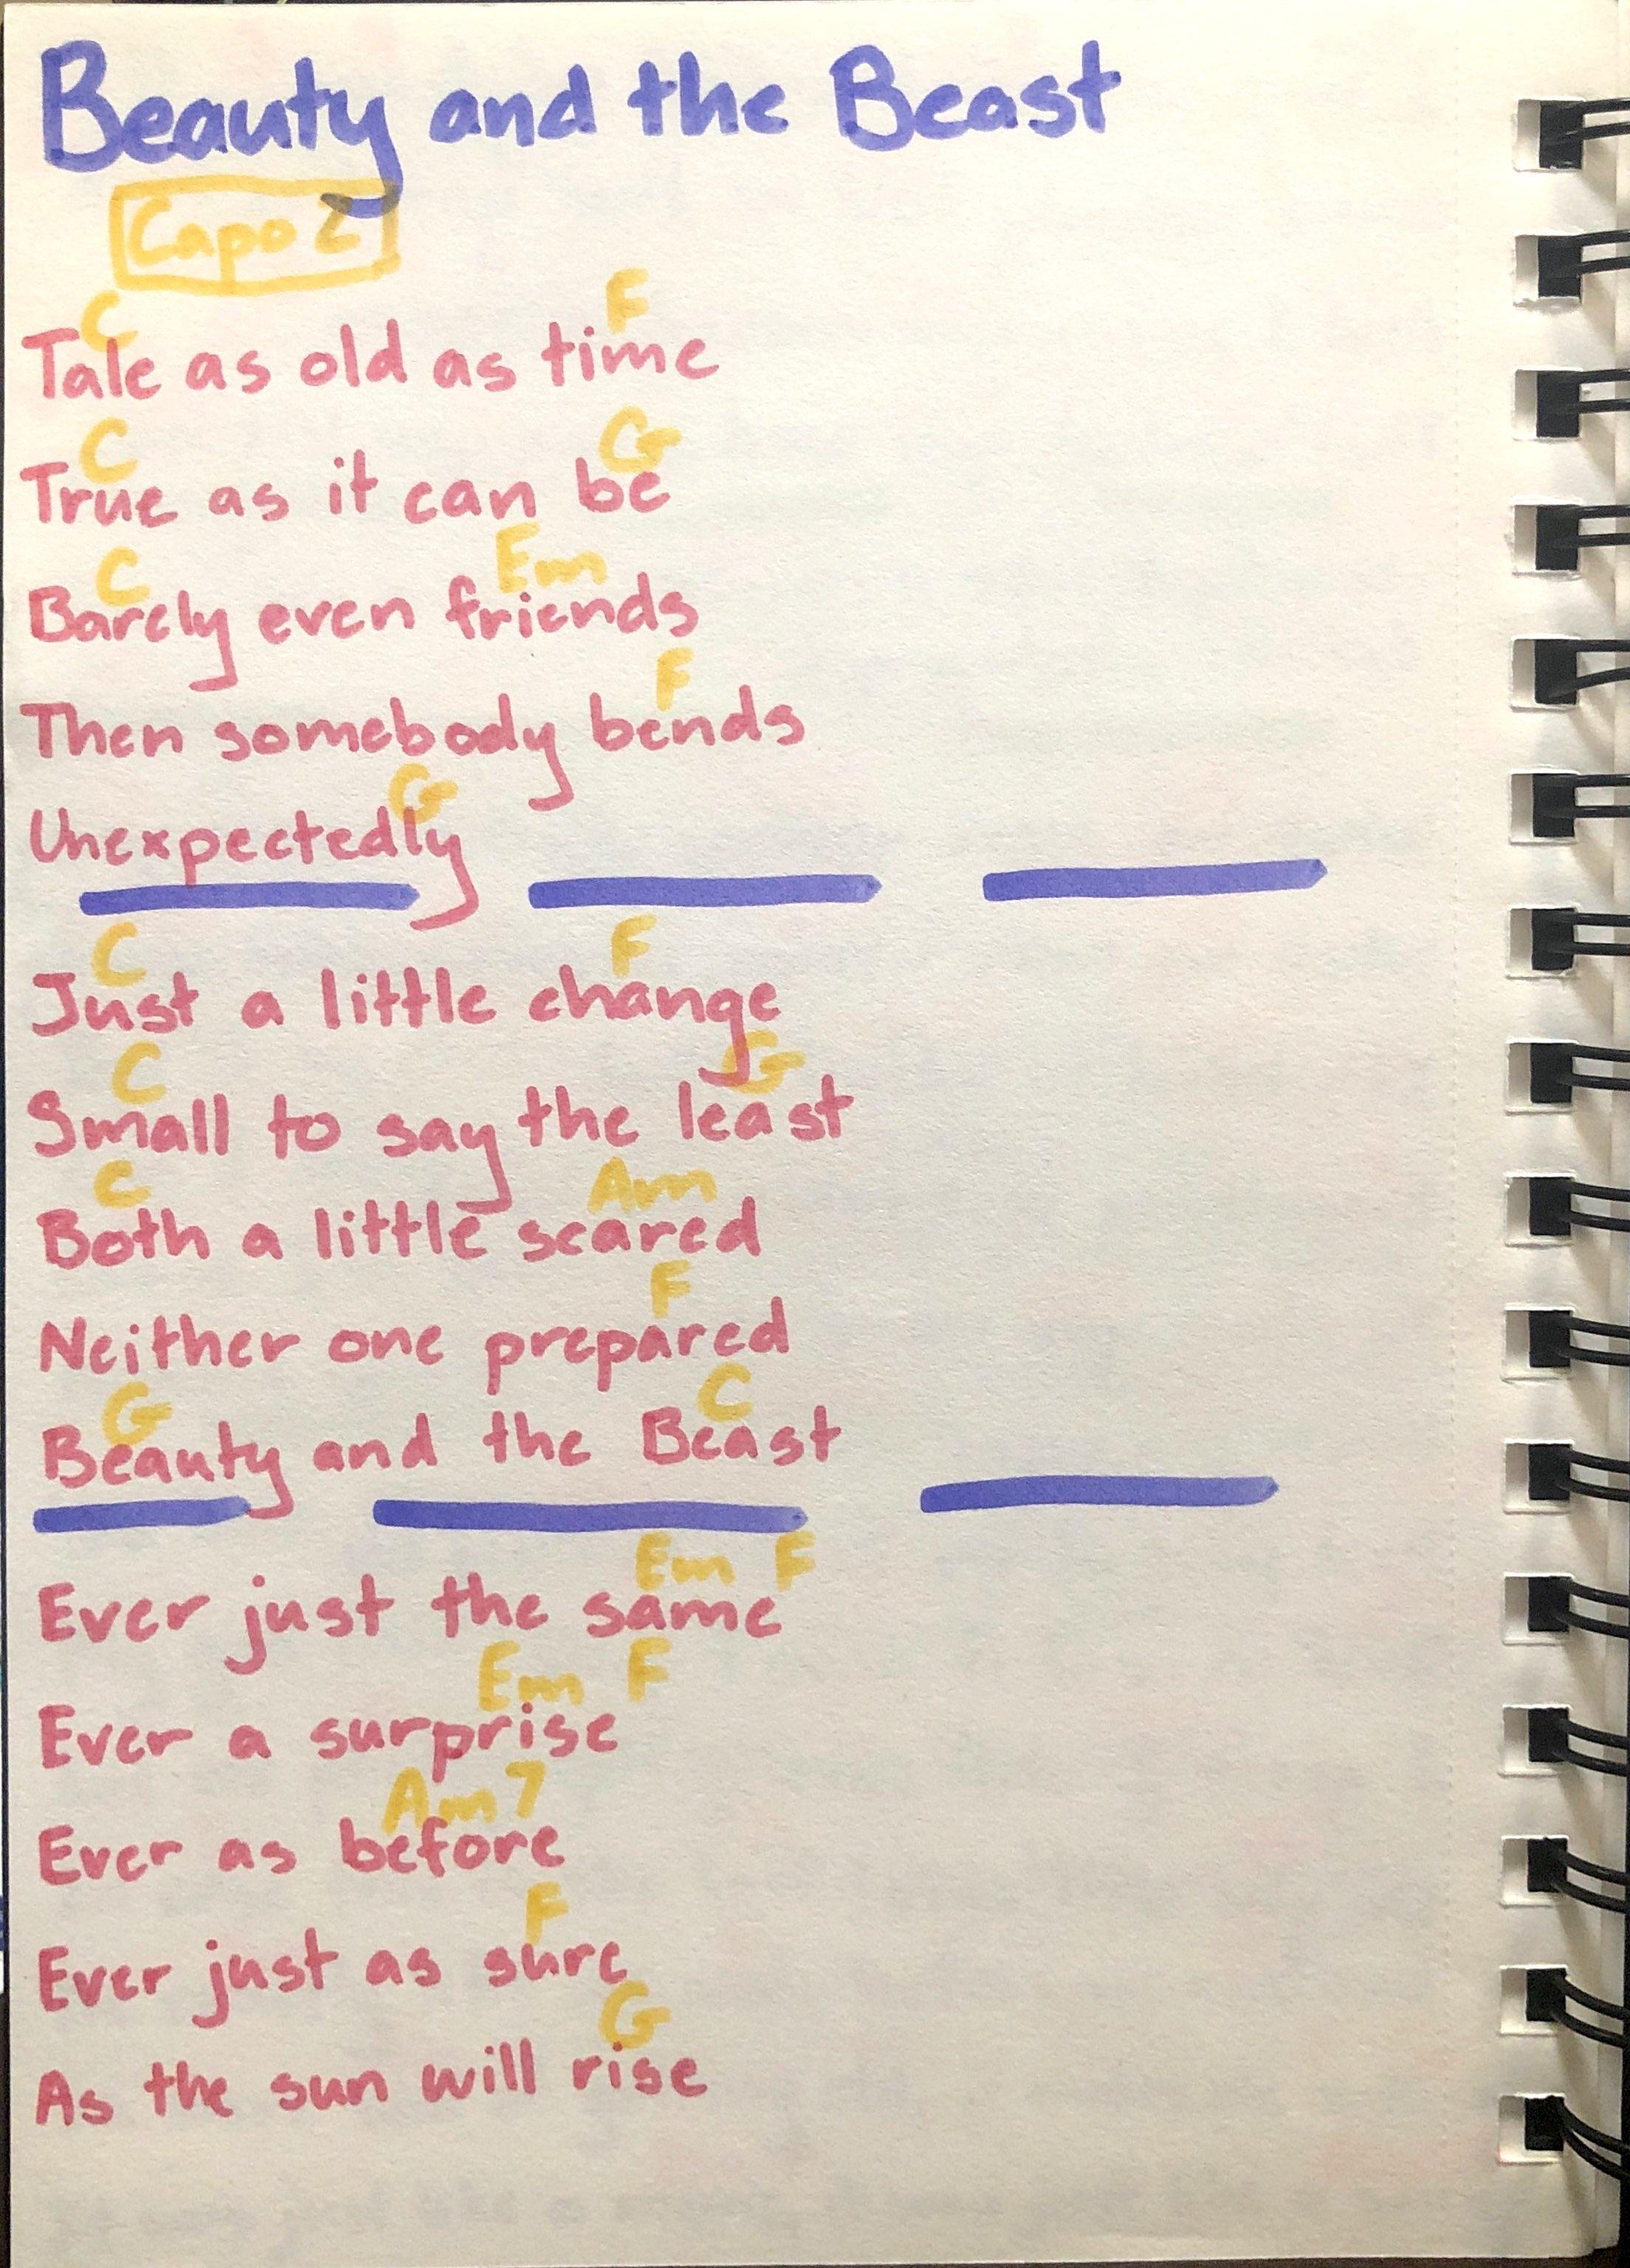 Beauty and the Beast
Capo 2
C F
Tale as old as time
C G
True as it can be
C Em
Barely even friends
F
Then somebody bends
G
Unexpectedly
C F
Just a little change
C G
Small to say the least
C Am
Both a little scared
F
Neither one prepared
G C
Beauty and the Beast
Em F
Ever just the same
Em F
Ever a surprise
Am7
Ever as before
F
Ever just as sure
G
As the sun will rise